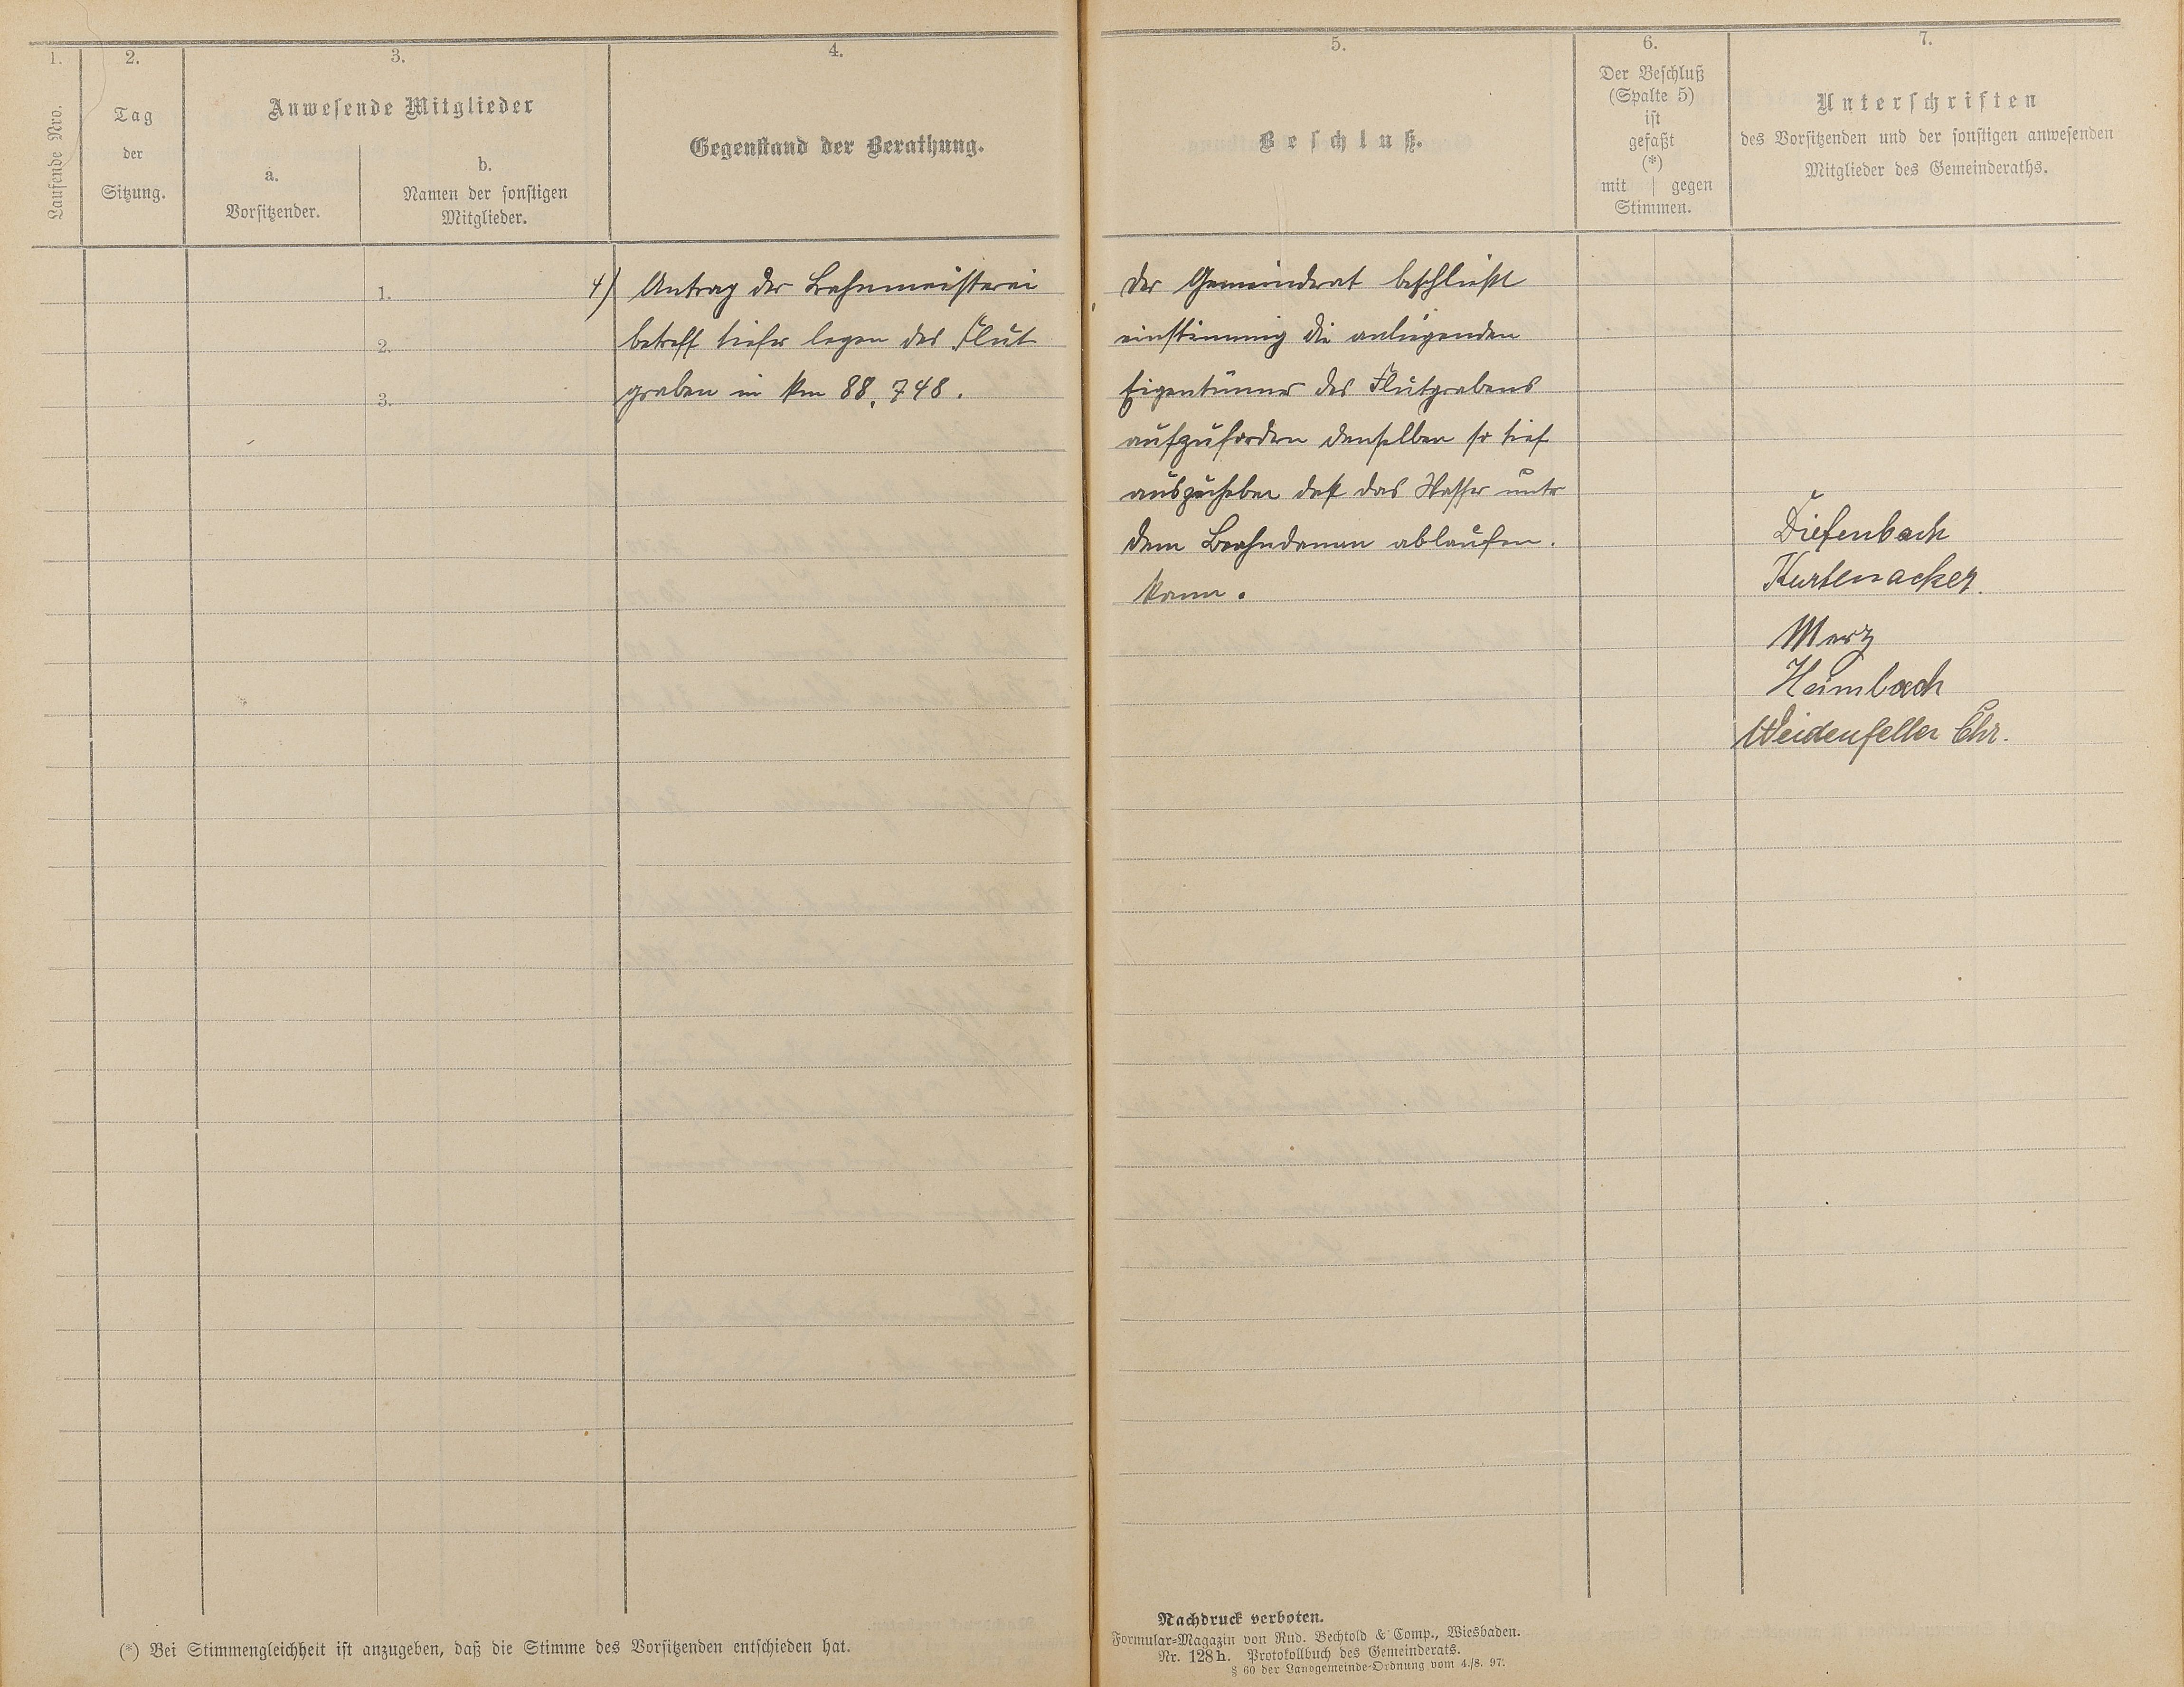 1.
Laufende Nro.
2.
Tag
der
Sitzung.
3.
Anwesende Mitglieder
a.
Vorsitzender.
b.
Namen der sonstigen
Mitglieder.
4.
Gegenstand der Berathung.
1.
2.
3.
4) Antrag der Bahnmeisterei
betreff tiefer legen des Flut
graben in km 88,748.
(*) Bei Stimmengleichheit ist anzugeben, daß die Stimme des Vorsitzenden entschieden hat.
5.
Beschluß.
6.
Der Beschluß
(Spalte 5)
ist
gefaßt
(*)
mit | gegen
Stimmen.
7.
Unterschriften
des Vorsitzenden und der sonstigen anwesenden
Mitglieder des Gemeinderaths.
Der Gemeinderat beschließt
einstimmig die anliegenden
Eigentümer des Flutgrabens
aufzufordern denselben so tief
auszuheben daß das Wasser unter
dem Bahndamm ablaufen.
kann.
Diefenbach
Kurtenacker.
Merz
Heimbach
Weidenfeller Chr.
Nachdruck verboten.
Formular-Magazin von Rud. Bechtold & Comp., Wiesbaden.
Nr. 128h. Protokollbuch des Gemeinderats.
§ 60 der Landgemeinde-Ordnung vom 4./8. 97.